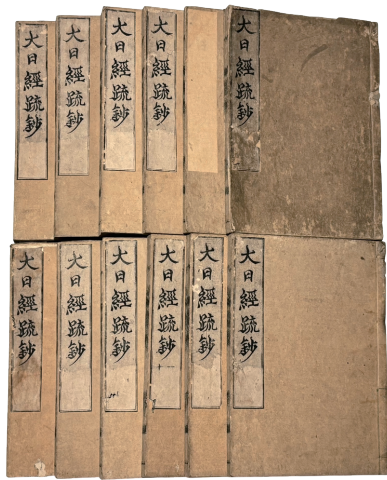 大日經疏鈔
大日經疏鈔
大日經疏鈔
大日經疏鈔
大日經疏鈔
大日經疏鈔
大日經疏鈔
大日經疏鈔
大日經疏鈔
大日經疏鈔
大日經疏鈔